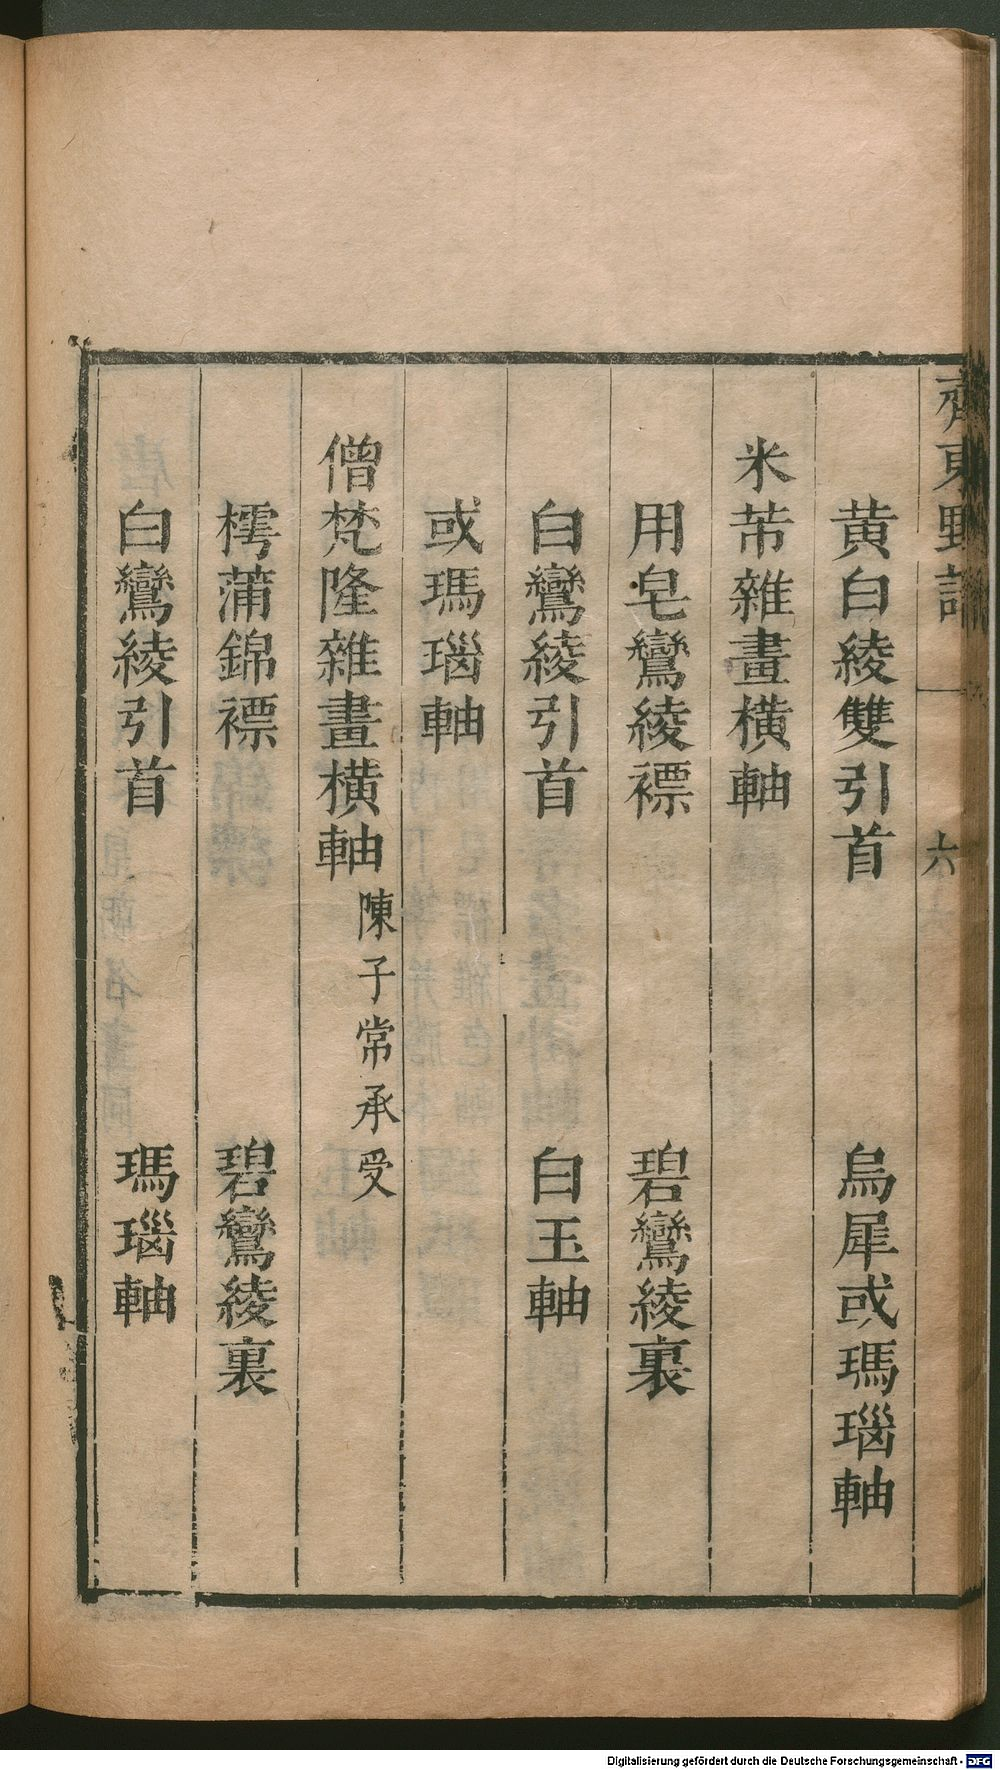 齊東野語
六
黄白綾雙引首　烏犀或瑪瑙軸
米芾雜畫橫軸
用皂鸞綾褾　碧鸞綾裏
白鸞綾引首　白玉軸
或瑪瑙軸
僧梵隆雜畫橫軸 陳子常承受
樗蒲錦褾　碧鸞綾裏
白鸞綾引首　瑪瑙軸
Digitalisierung gefördert durch die Deutsche Forschungsgemeinschaft - DFG